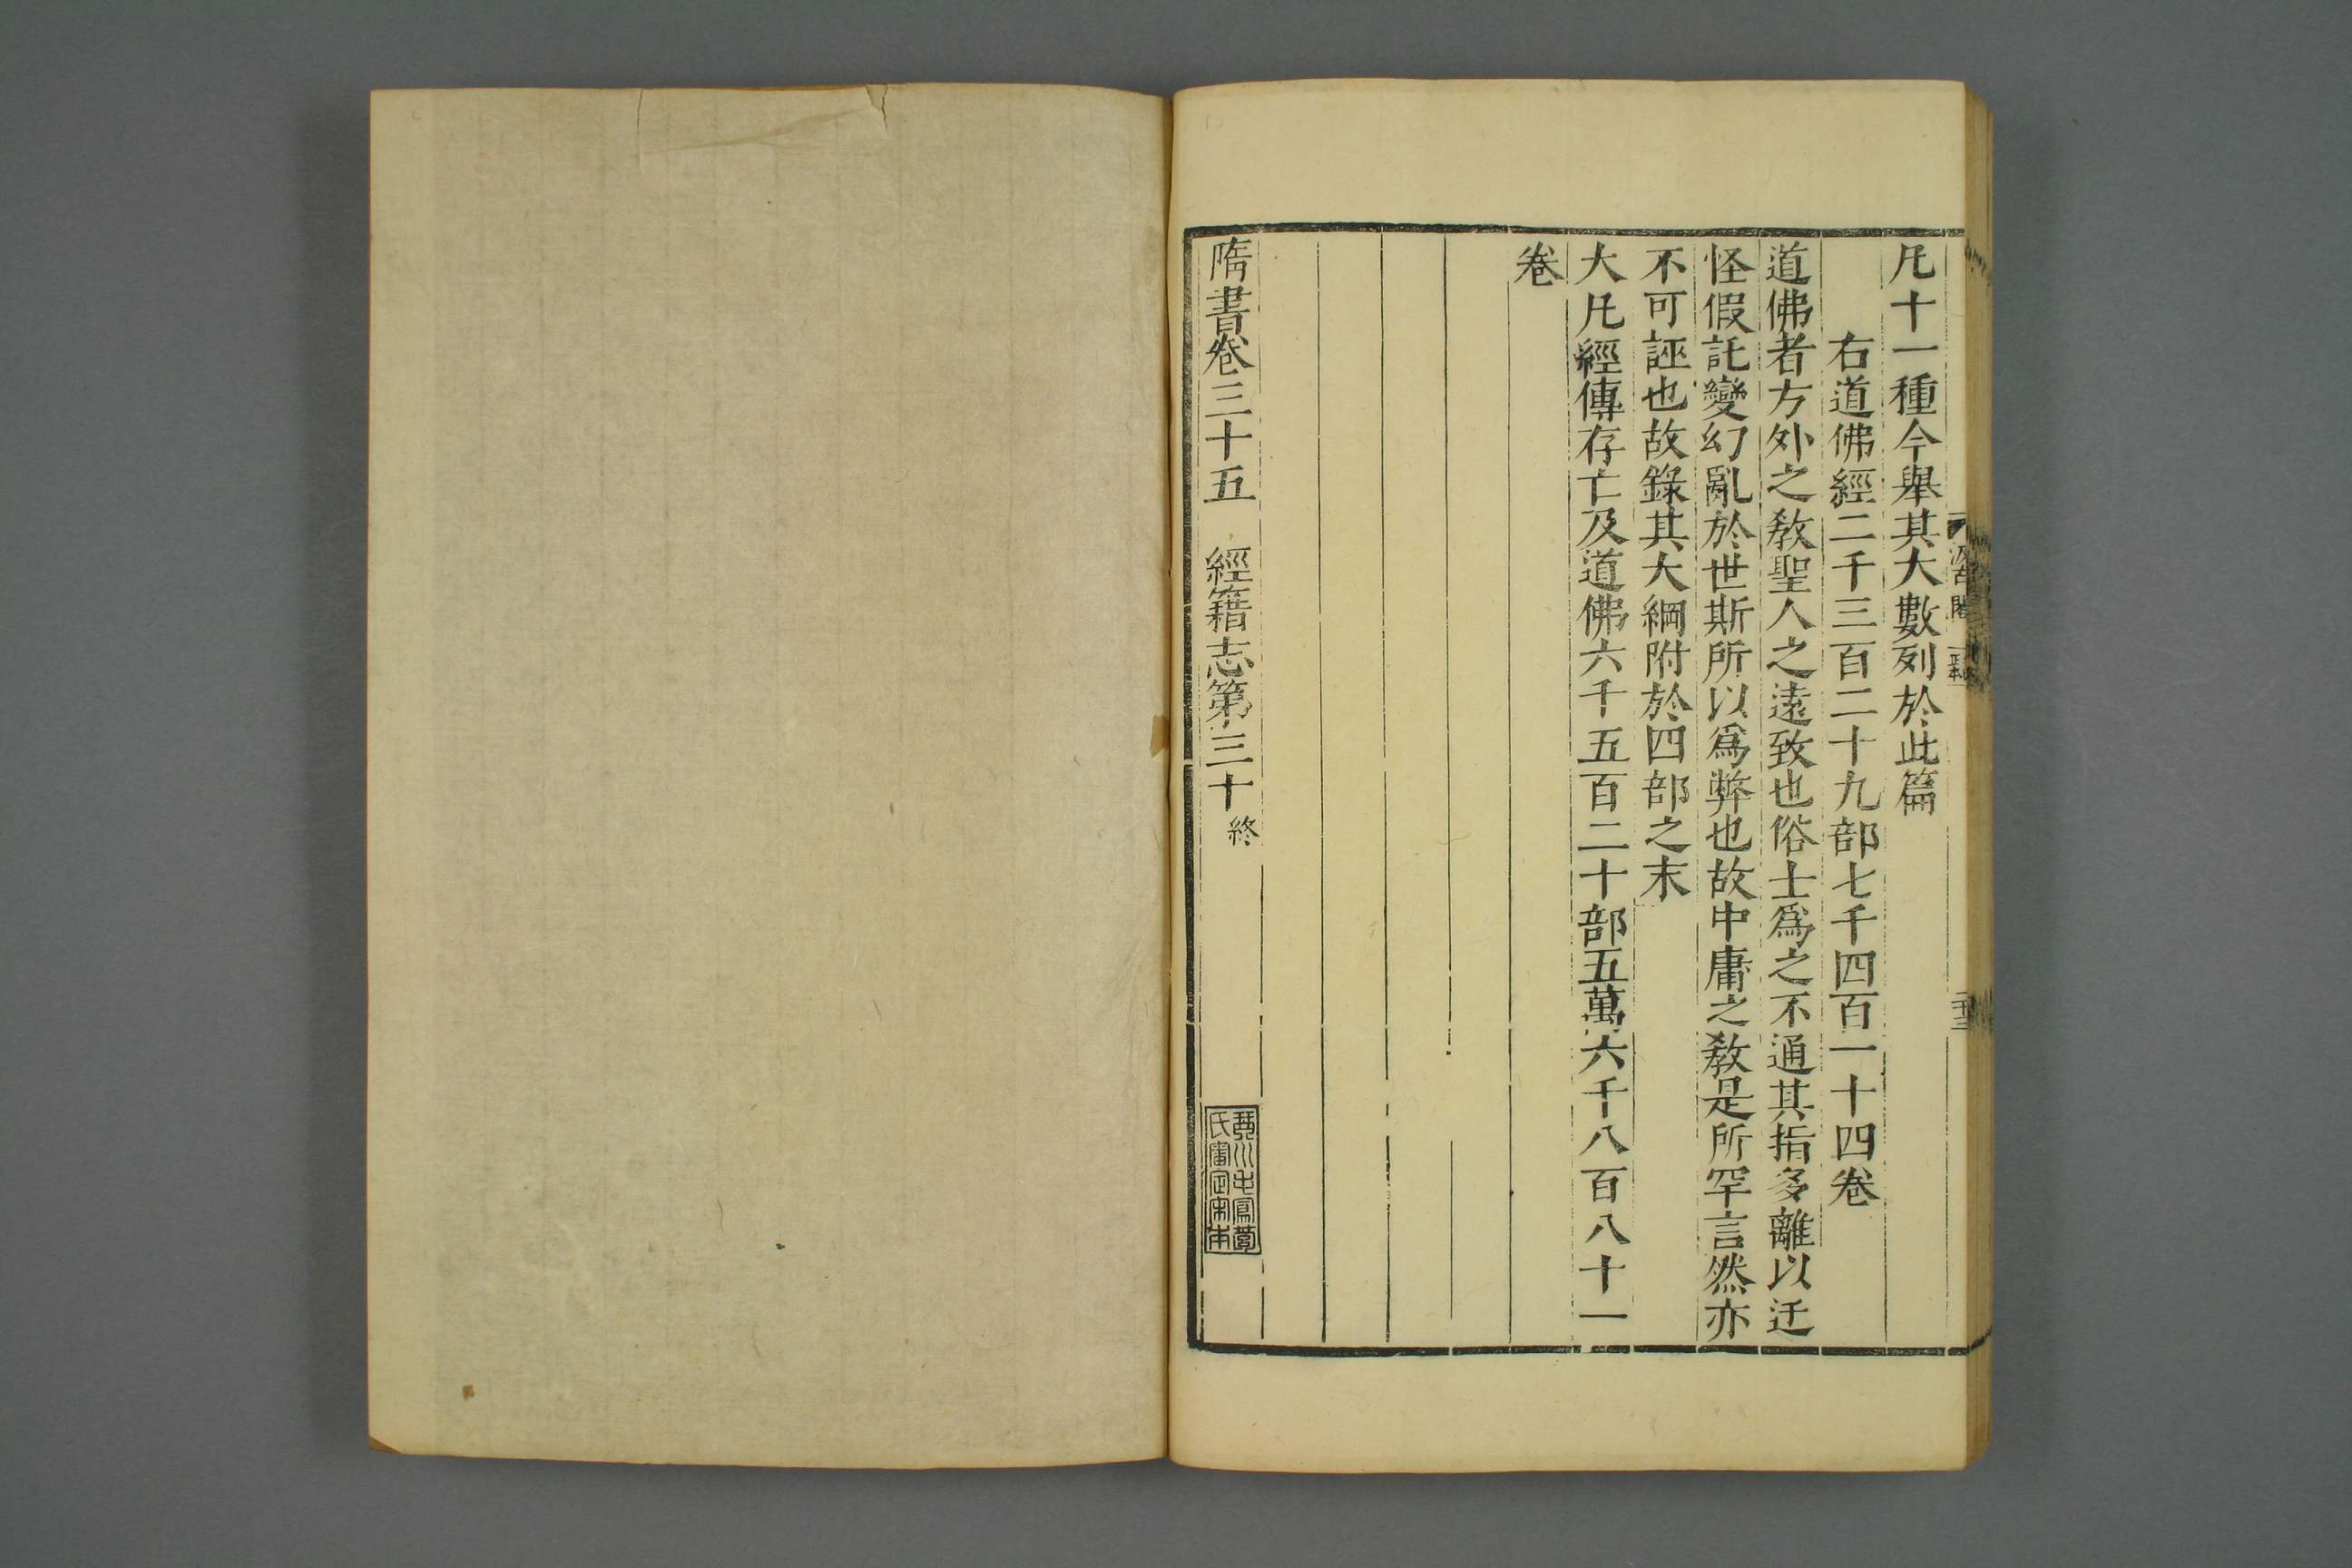 汲古閣
毛氏
正本
凡十一種今舉其大數列於此篇
右道佛經二千三百二十九部七千四百一十四卷
道佛者方外之敎聖人之遠致也俗士爲之不通其指多離以迂
怪假託變幻亂於世斯所以爲弊也故中庸之敎是所罕言然亦
不可誣也故錄其大綱附於四部之末
大凡經傳存亡及道佛六千五百二十部五萬六千八百八十一
卷
隋書卷三十五 經籍志第三十 終
琴川毛鳳苞
氏審定宋本